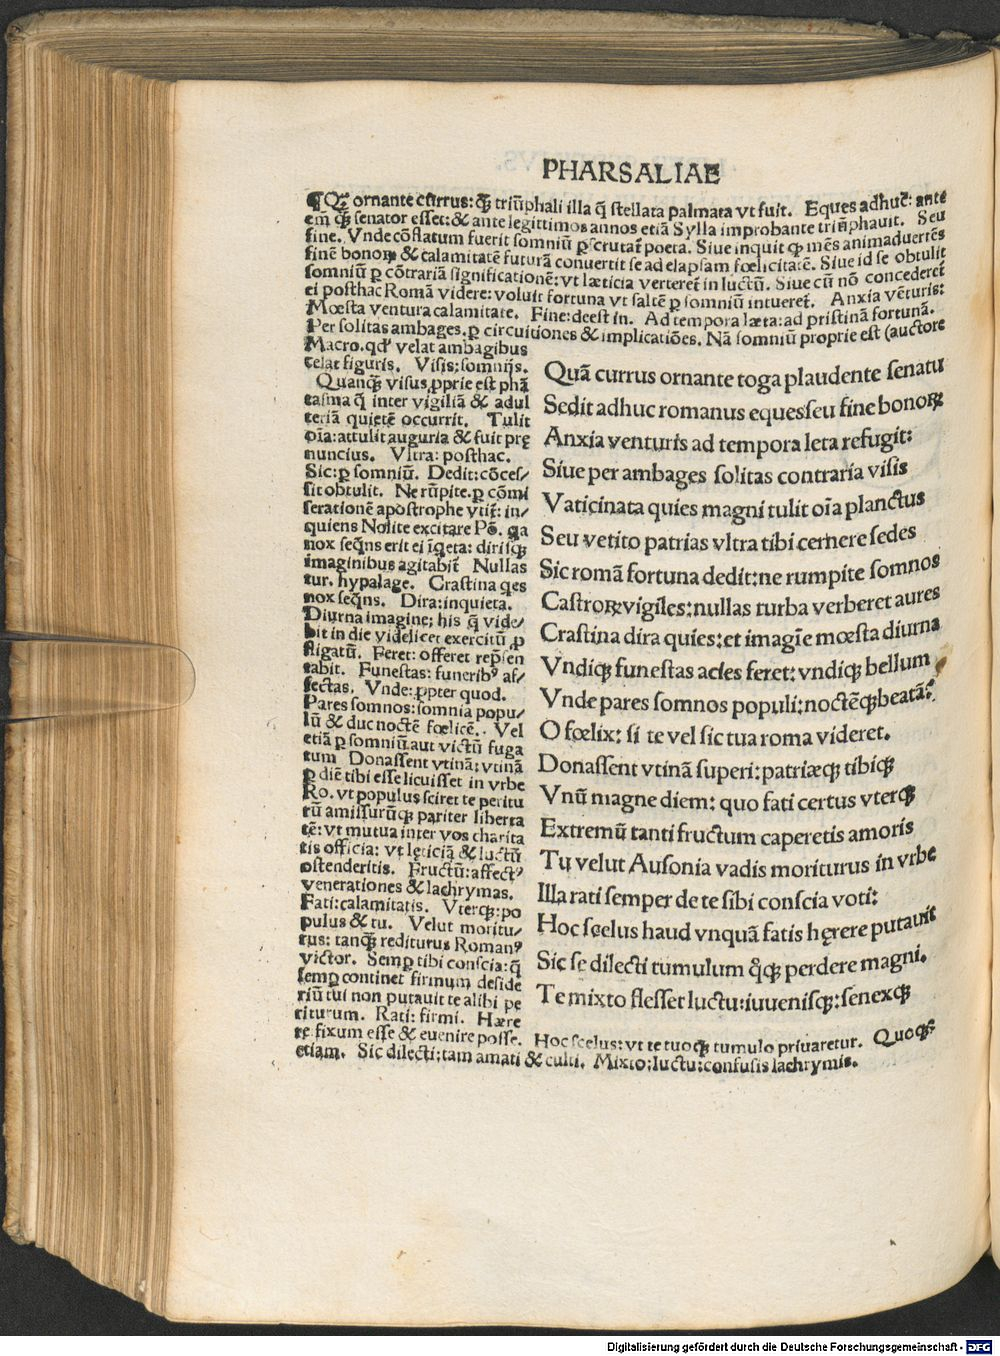 PHARSALIAE
¶Qꝫ ornante currus: qꝫ triũphali illa q̃ stellata palmata vt fuit. Eques adhuc: ante
em qꝫ senator esset: & ante legittimos annos etiã Sylla improbante triũphauit. Seu
fine. Vnde cõflatum fuerit somniũ ꝑscrutat᷑ poeta. Siue inquit ꝙ mẽs animaduertẽs
finẽ bonoꝝ & calamitatẽ futurã conuertit se ad elapsam fœlicitatẽ. Siue id se obtulit
somniũ ꝑ cõtrariã significationẽ: vt læticia verteret᷑ in luctũ. Siue cũ nõ concederet᷑
ei posthac Romã videre: voluit fortuna vt saltẽ ꝑ somniũ intueret᷑. Anxia vẽturis:
Mœsta ventura calamitate. Fine: deest in. Ad tempora læta: ad pristinã fortunã.
Per solitas ambages. ꝑ circuitiones & implicatiões. Nã somniũ proprie est (auctore
Macro. qd' velat ambagibus
celat figuris. Visis: somnijs.
Quanqꝫ visus ꝓprie est phã
tasma q̃ inter vigiliã & adul
teriã quietẽ occurrit. Tulit
oĩa: attulit auguria & fuit prę
nuncius. Vltra: posthac.
Sic: ꝑ somniũ. Dedit: cõces/
sit obtulit. Ne rũpite. ꝑ cõmi
serationẽ apostrophe vtit᷑: in/
quiens Nolite excitare Põ. qa
nox seq̃ns erit ei ĩqeta: dirisqꝫ
imaginibus agitabit᷑ Nullas
tur. hypalage. Crastina qes
nox seq̃ns. Dira: inquieta.
Diurna imagine; his q̃ vide/
bit in die videlicet exercitũ ꝓ
fligatũ. Feret: offeret repsen
tabit. Funestas: funeribꝰ af/
fectas. Vnde: ꝓpter quod.
Pares somnos: somnia popu/
lũ & duc noctẽ fœlicẽ. Vel
etiã ꝑ somniũ aut victũ fuga
tum Donassent vtinã: vtinã
ꝑ diẽ tibi esse licuisset in vrbe
Ro. vt populus sciret te peritu
rũ amissurũqꝫ pariter liberta
tẽ: vt mutua inter vos charita
tis officia: vt lęticiã & luctũ
ostenderitis. Fructũ: affectꝰ
venerationes & lachrymas.
Fati: calamitatis. Vterqꝫ: po
pulus & tu. Velut moritu/
rus: tanqꝫ rediturus Romanꝰ
victor. Semꝑ tibi conscia: q̃
semꝑ continet firmum deside
riũ tui non putauit te alibi pe
riturum. Rati: firmi. Hære
re: fixum esse & euenire posse. Hoc scelus: vt te tuoqꝫ tumulo priuaretur. Quoqꝫ:
etiam. Sic dilecti: tam amati & culti. Mixto: luctu: confusis lachrymis.
Quã currus ornante toga plaudente senatu
Sedit adhuc romanus eques: seu fine bonoꝝ
Anxia venturis ad tempora leta refugit:
Siue per ambages solitas contraria visis
Vaticinata quies magni tulit oĩa planctus
Seu vetito patrias vltra tibi cernere sedes
Sic romã fortuna dedit: ne rumpite somnos
Castroꝝ vigiles: nullas turba verberet aures
Crastina dira quies: et imagĩe mœsta diurna
Vndiqꝫ funestas acies feret: vndiqꝫ bellum
Vnde pares somnos populi: noctẽqꝫ beatã:
O fœlix: si te vel sic tua roma videret.
Donassent vtinã superi: patriæqꝫ tibiqꝫ
Vnũ magne diem: quo fati certus vterqꝫ
Extremũ tanti fructum caperetis amoris
Tu velut Ausonia vadis moriturus in vrbe
Illa rati semper de te sibi conscia voti:
Hoc scelus haud vnquã fatis hęrere putauit
Sic se dilecti tumulum q̊qꝫ perdere magni.
Te mixto flesset luctu: iuuenisqꝫ: senexqꝫ
Digitalisierung gefördert durch die Deutsche Forschungsgemeinschaft - DFG